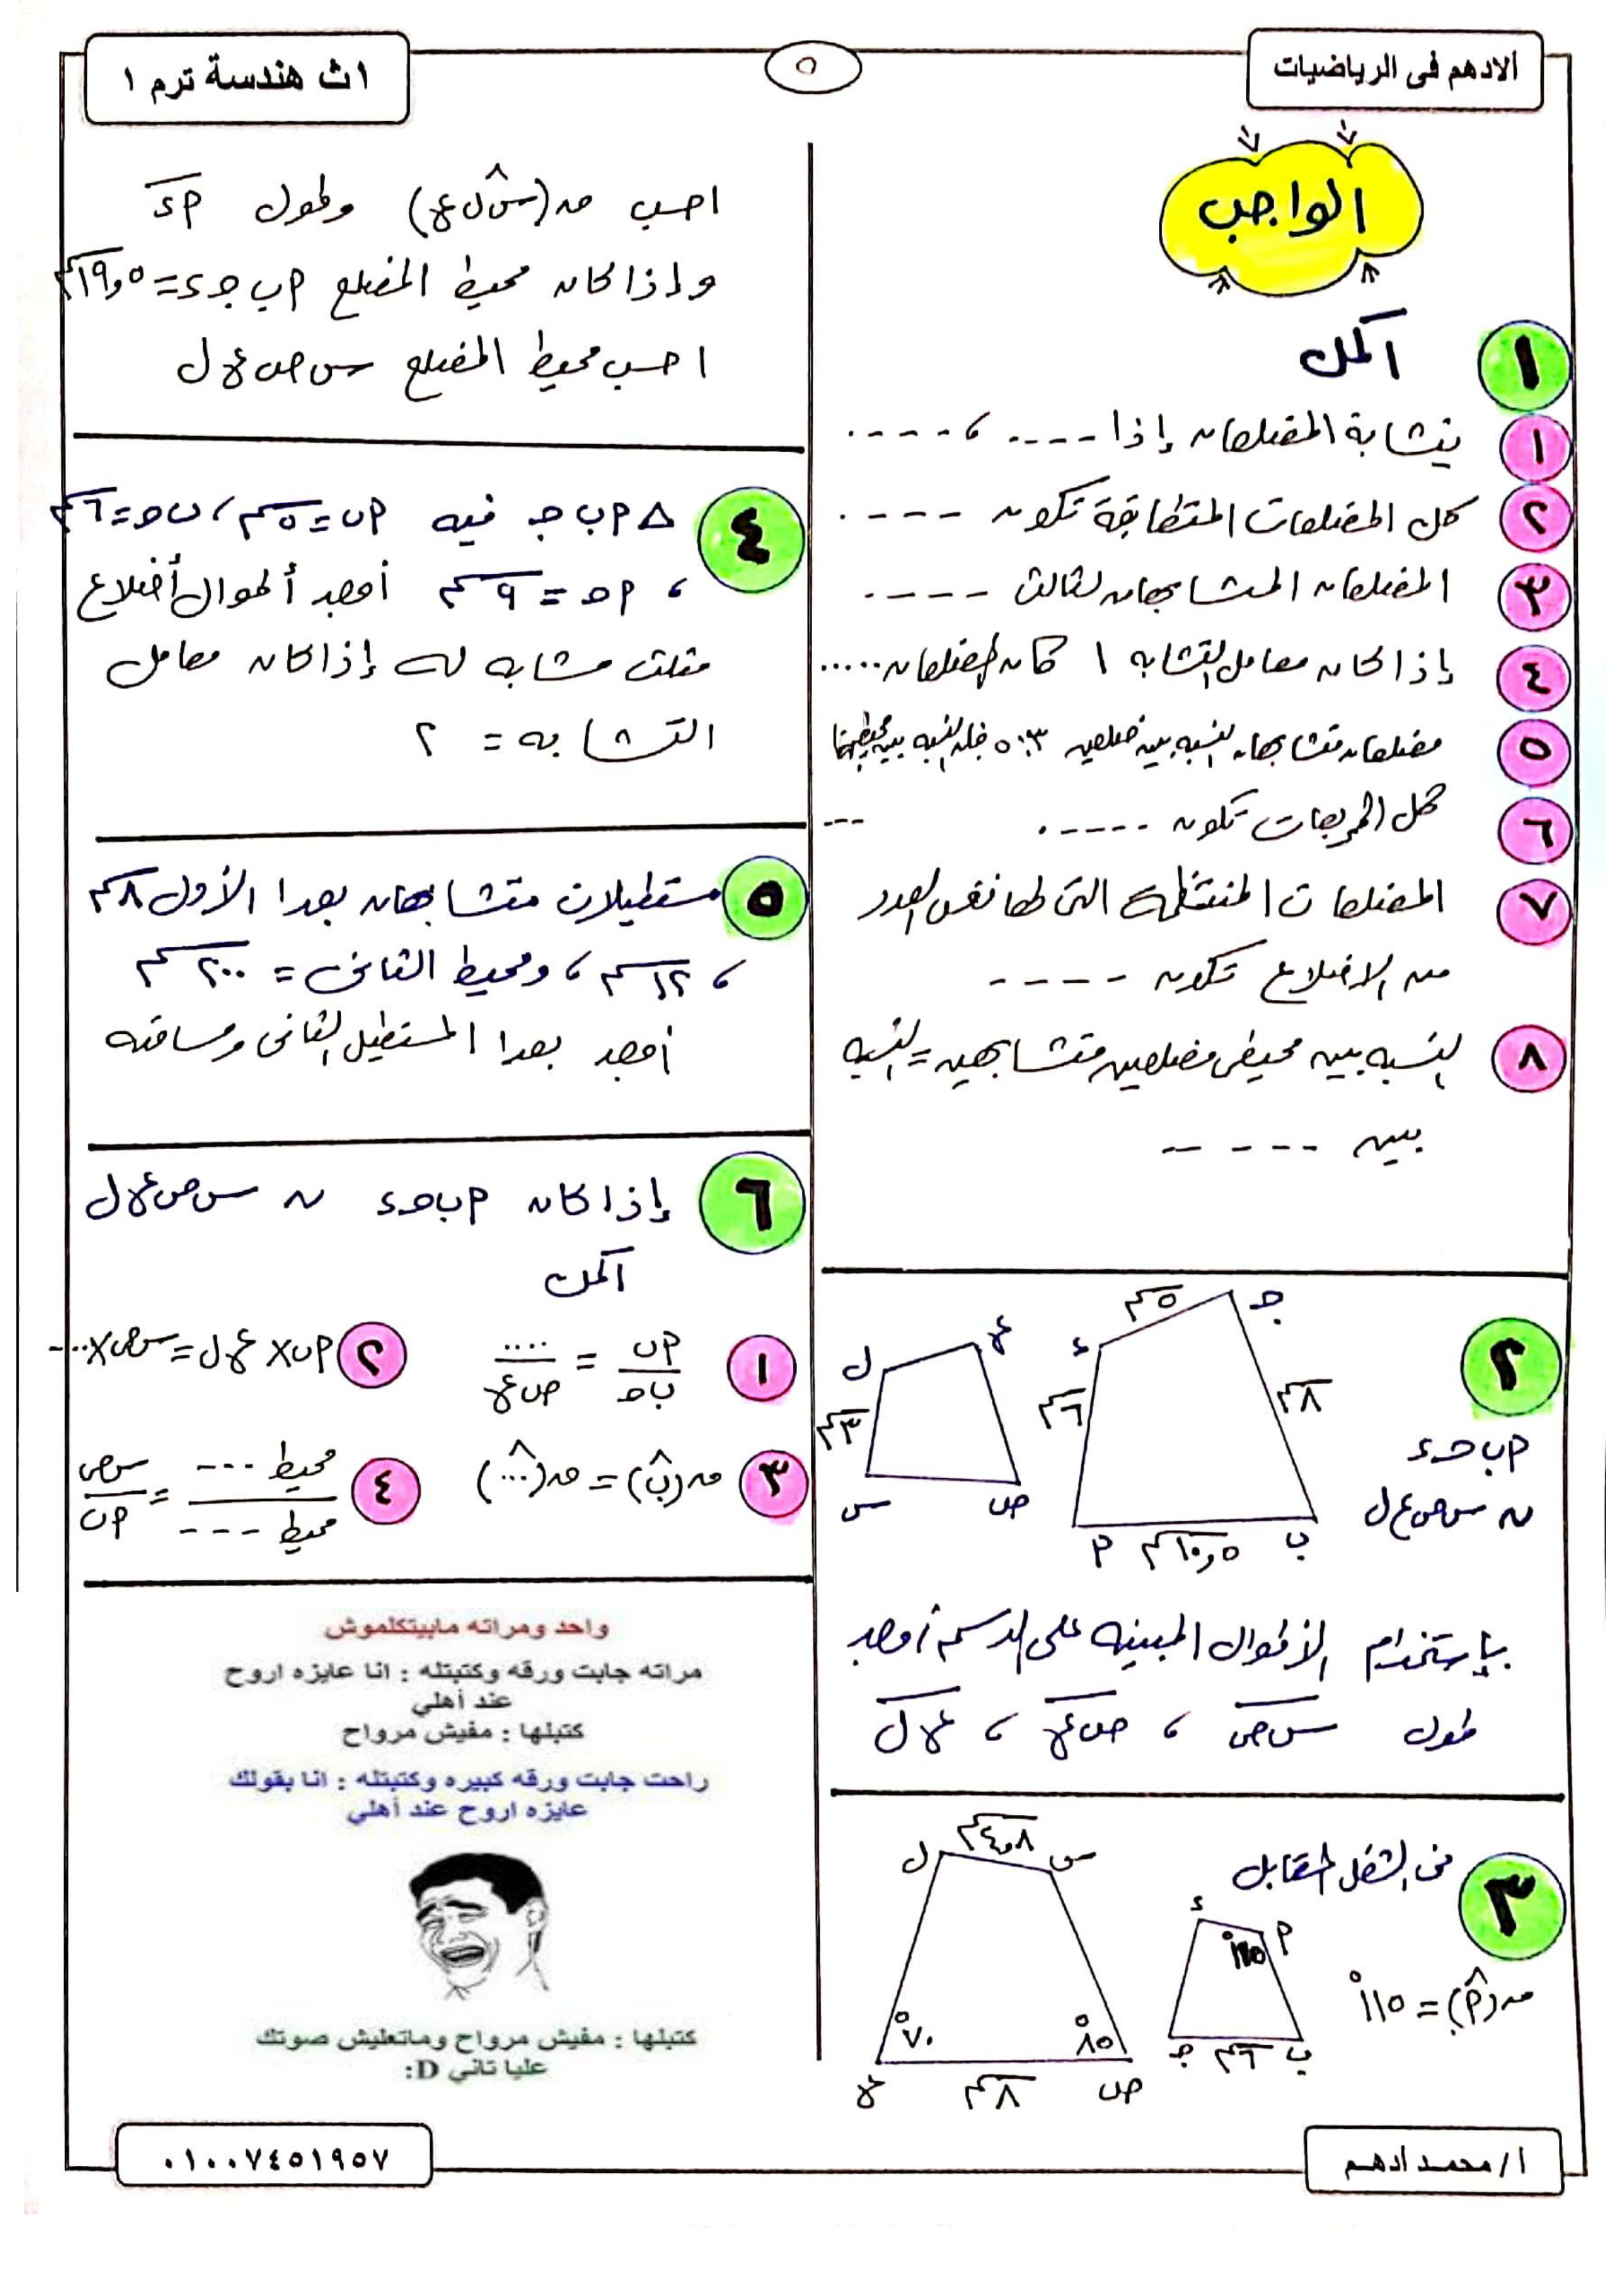 الادهم فى الرياضيات
٥
١ث هندسة ترم ١
الواجب
١ أكمل
١ يتشابة المضلعان إذا ---- ، ----
٢ كل المضلعات المتطابقة تكون ----
٣ المضلعان المشابهان لثالث ----
٤ إذا كان معامل التشابه ١ كان المضلعان .....
٥ مضلعان متشابهان النسبه بين ضلعين ٥:٣ فإن النسبه بين محيطيهما ---
٦ كل المربعات تكون -----
٧ المضلعات المنتظمة التى لها نفس العدد
من الاضلاع تكون ----
٨ النسبه بين محيطى مضلعين متشابهين = النسبه
بين -----
٢
أ ب جـ ء
~ س ص ع ل
جـ
٥سم
ء
٨سم
٦سم
ب
١٠,٥سم
أ
ع
ل
٣سم
س
ص
بإستخدام الأطوال المبينه على الرسم أوجد
طول س ص ، ص ع ، ع ل
٣ فى الشكل المقابل
ق(أ^) = ١١٥°
ء
أ
١١٥°
ب
٦سم
جـ
ل
٤,٨سم
س
٧٠°
٨٥°
ع
٨سم
ص
احسب ق(س ل ع) وطول أ ء
وإذا كان محيط المضلع أ ب جـ ء = ١٩,٥سم
احسب محيط المضلع س ص ع ل
٤ ∆ أ ب جـ فيه أ ب = ٥سم ، ب جـ = ٦سم
، أ جـ = ٩سم أوجد أطوال أضلاع
مثلث مشابه له إذا كان معامل
التشابه = ٢
٥ مستطيلان متشابهان بعدا الأول ٨سم
، ١٢سم ، ومحيط الثانى = ٢٠٠سم
أوجد بعدا المستطيل الثانى ومساحته
٦ إذا كان أ ب جـ ء ~ س ص ع ل
أكمل
١ أ ب / ب جـ = .... / ص ع
٢ أ ب × ع ل = س ص × ....
٣ ق(ب^) = ق(...^)
٤ محيط --- / محيط --- = س ص / أ ب
واحد ومراته مابيتكلموش
مراته جابت ورقه وكتبتله : انا عايزه اروح
عند أهلي
كتبلها : مفيش مرواح
راحت جابت ورقه كبيره وكتبتله : انا بقولك
عايزه اروح عند أهلي
كتبلها : مفيش مرواح وماتعليش صوتك
عليا تاني D:
أ/محمد ادهم
٠١٠٠٧٤٥١٩٥٧